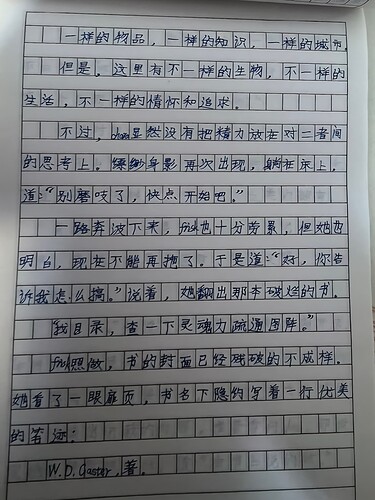 一样的物品，一样的知识，一样的城市，
但是，这里有不一样的生物，不一样的
生活，不一样的情怀和追求。
不过，chara显然没有把精力放在对二者间
的思考上。缥缈身影再次出现，躺在床上，
道：“别磨叽了，快点开始吧。”
一路奔波下来，frisk也十分劳累，但她也
明白，现在不能再拖了。于是道：“好，你告
诉我怎么搞。”说着，她翻出那本破烂的书。
“找目录，查一下灵魂力疏通图阵。”
frisk照做，书的封面已经残破的不成样。
她看了一眼扉页，书名下隐约写着一行优美
的笔迹：
W.D.Gaster，著。